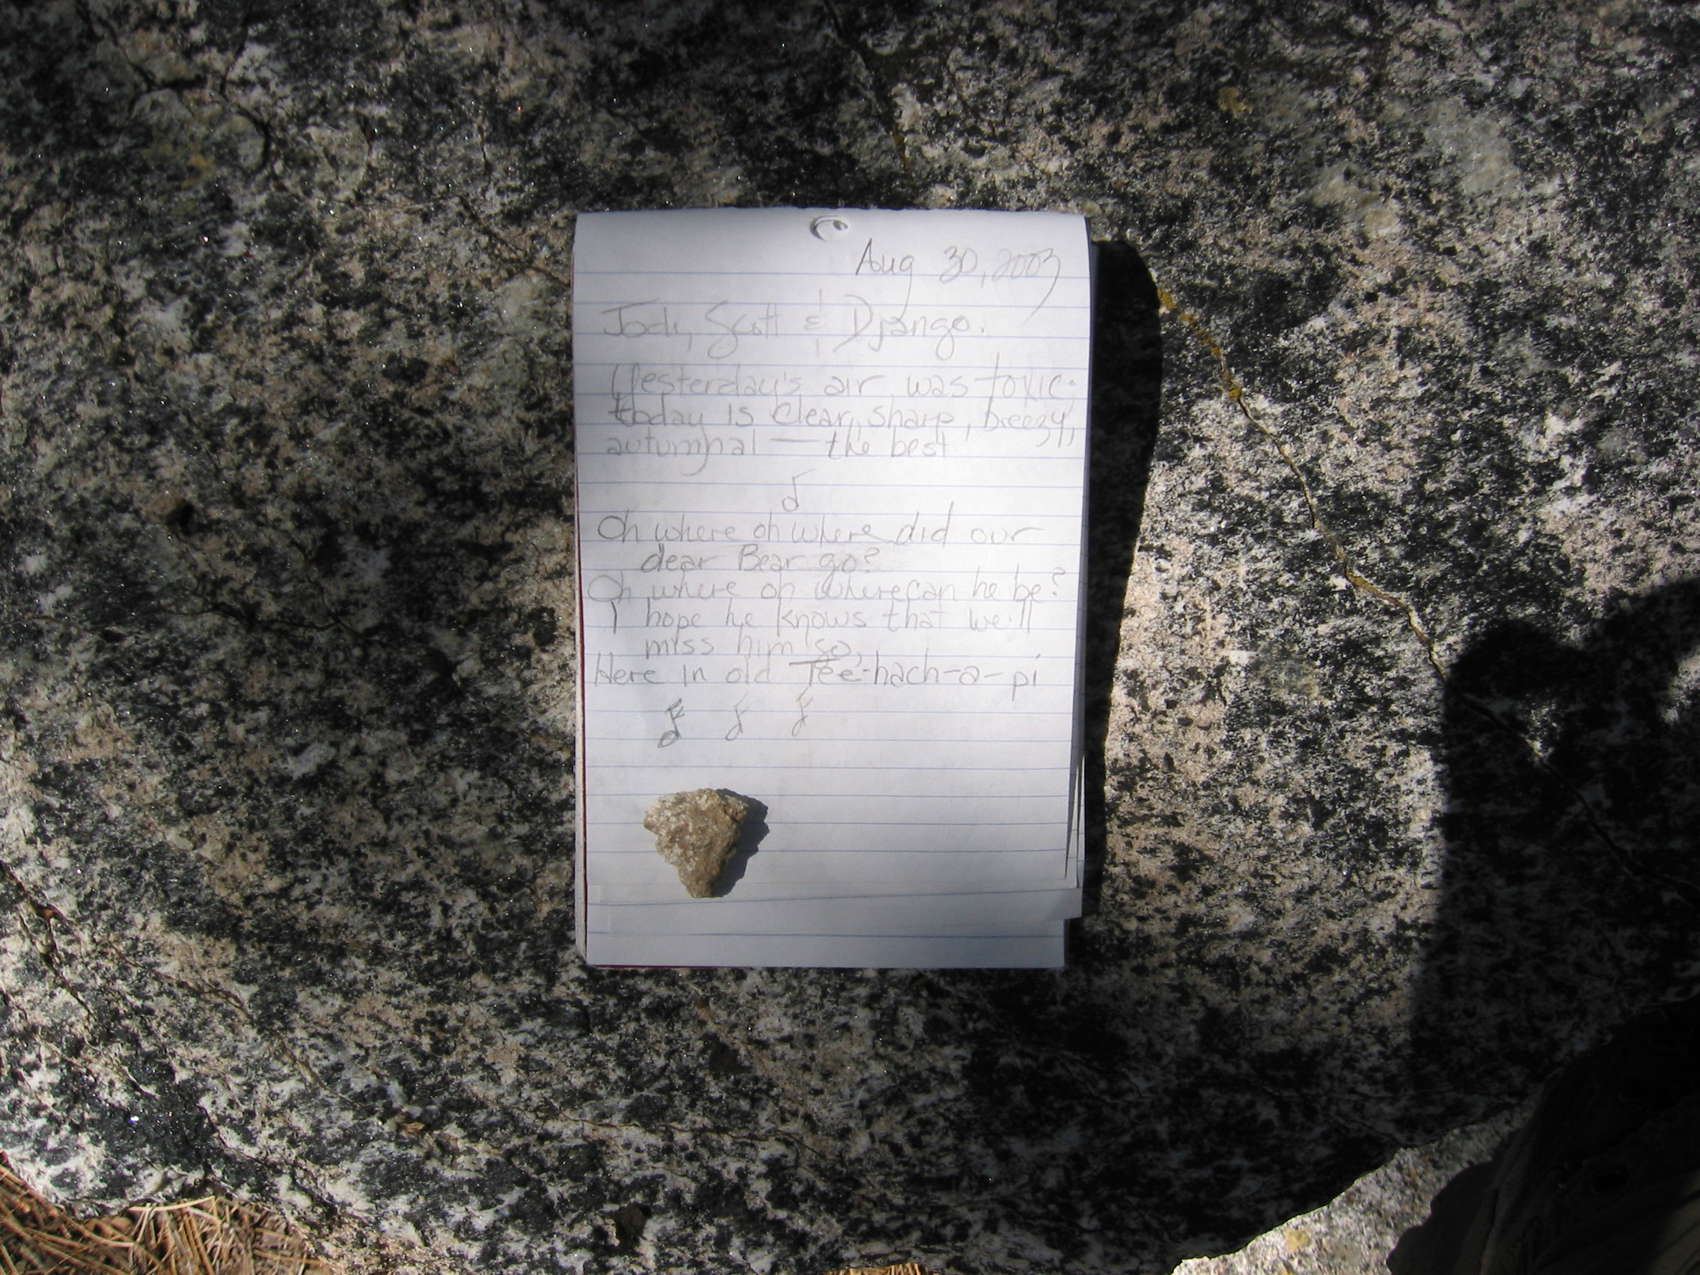 Aug 30, 2003
Jodi, Scott & Django.
Yesterday's air was toxic.
today is clear, sharp, breezy,
autumnal — the best
Oh where oh where did our
dear Bear go?
Oh where oh where can he be?
I hope he knows that we'll
miss him so,
Here in old Tee-hach-a-pi